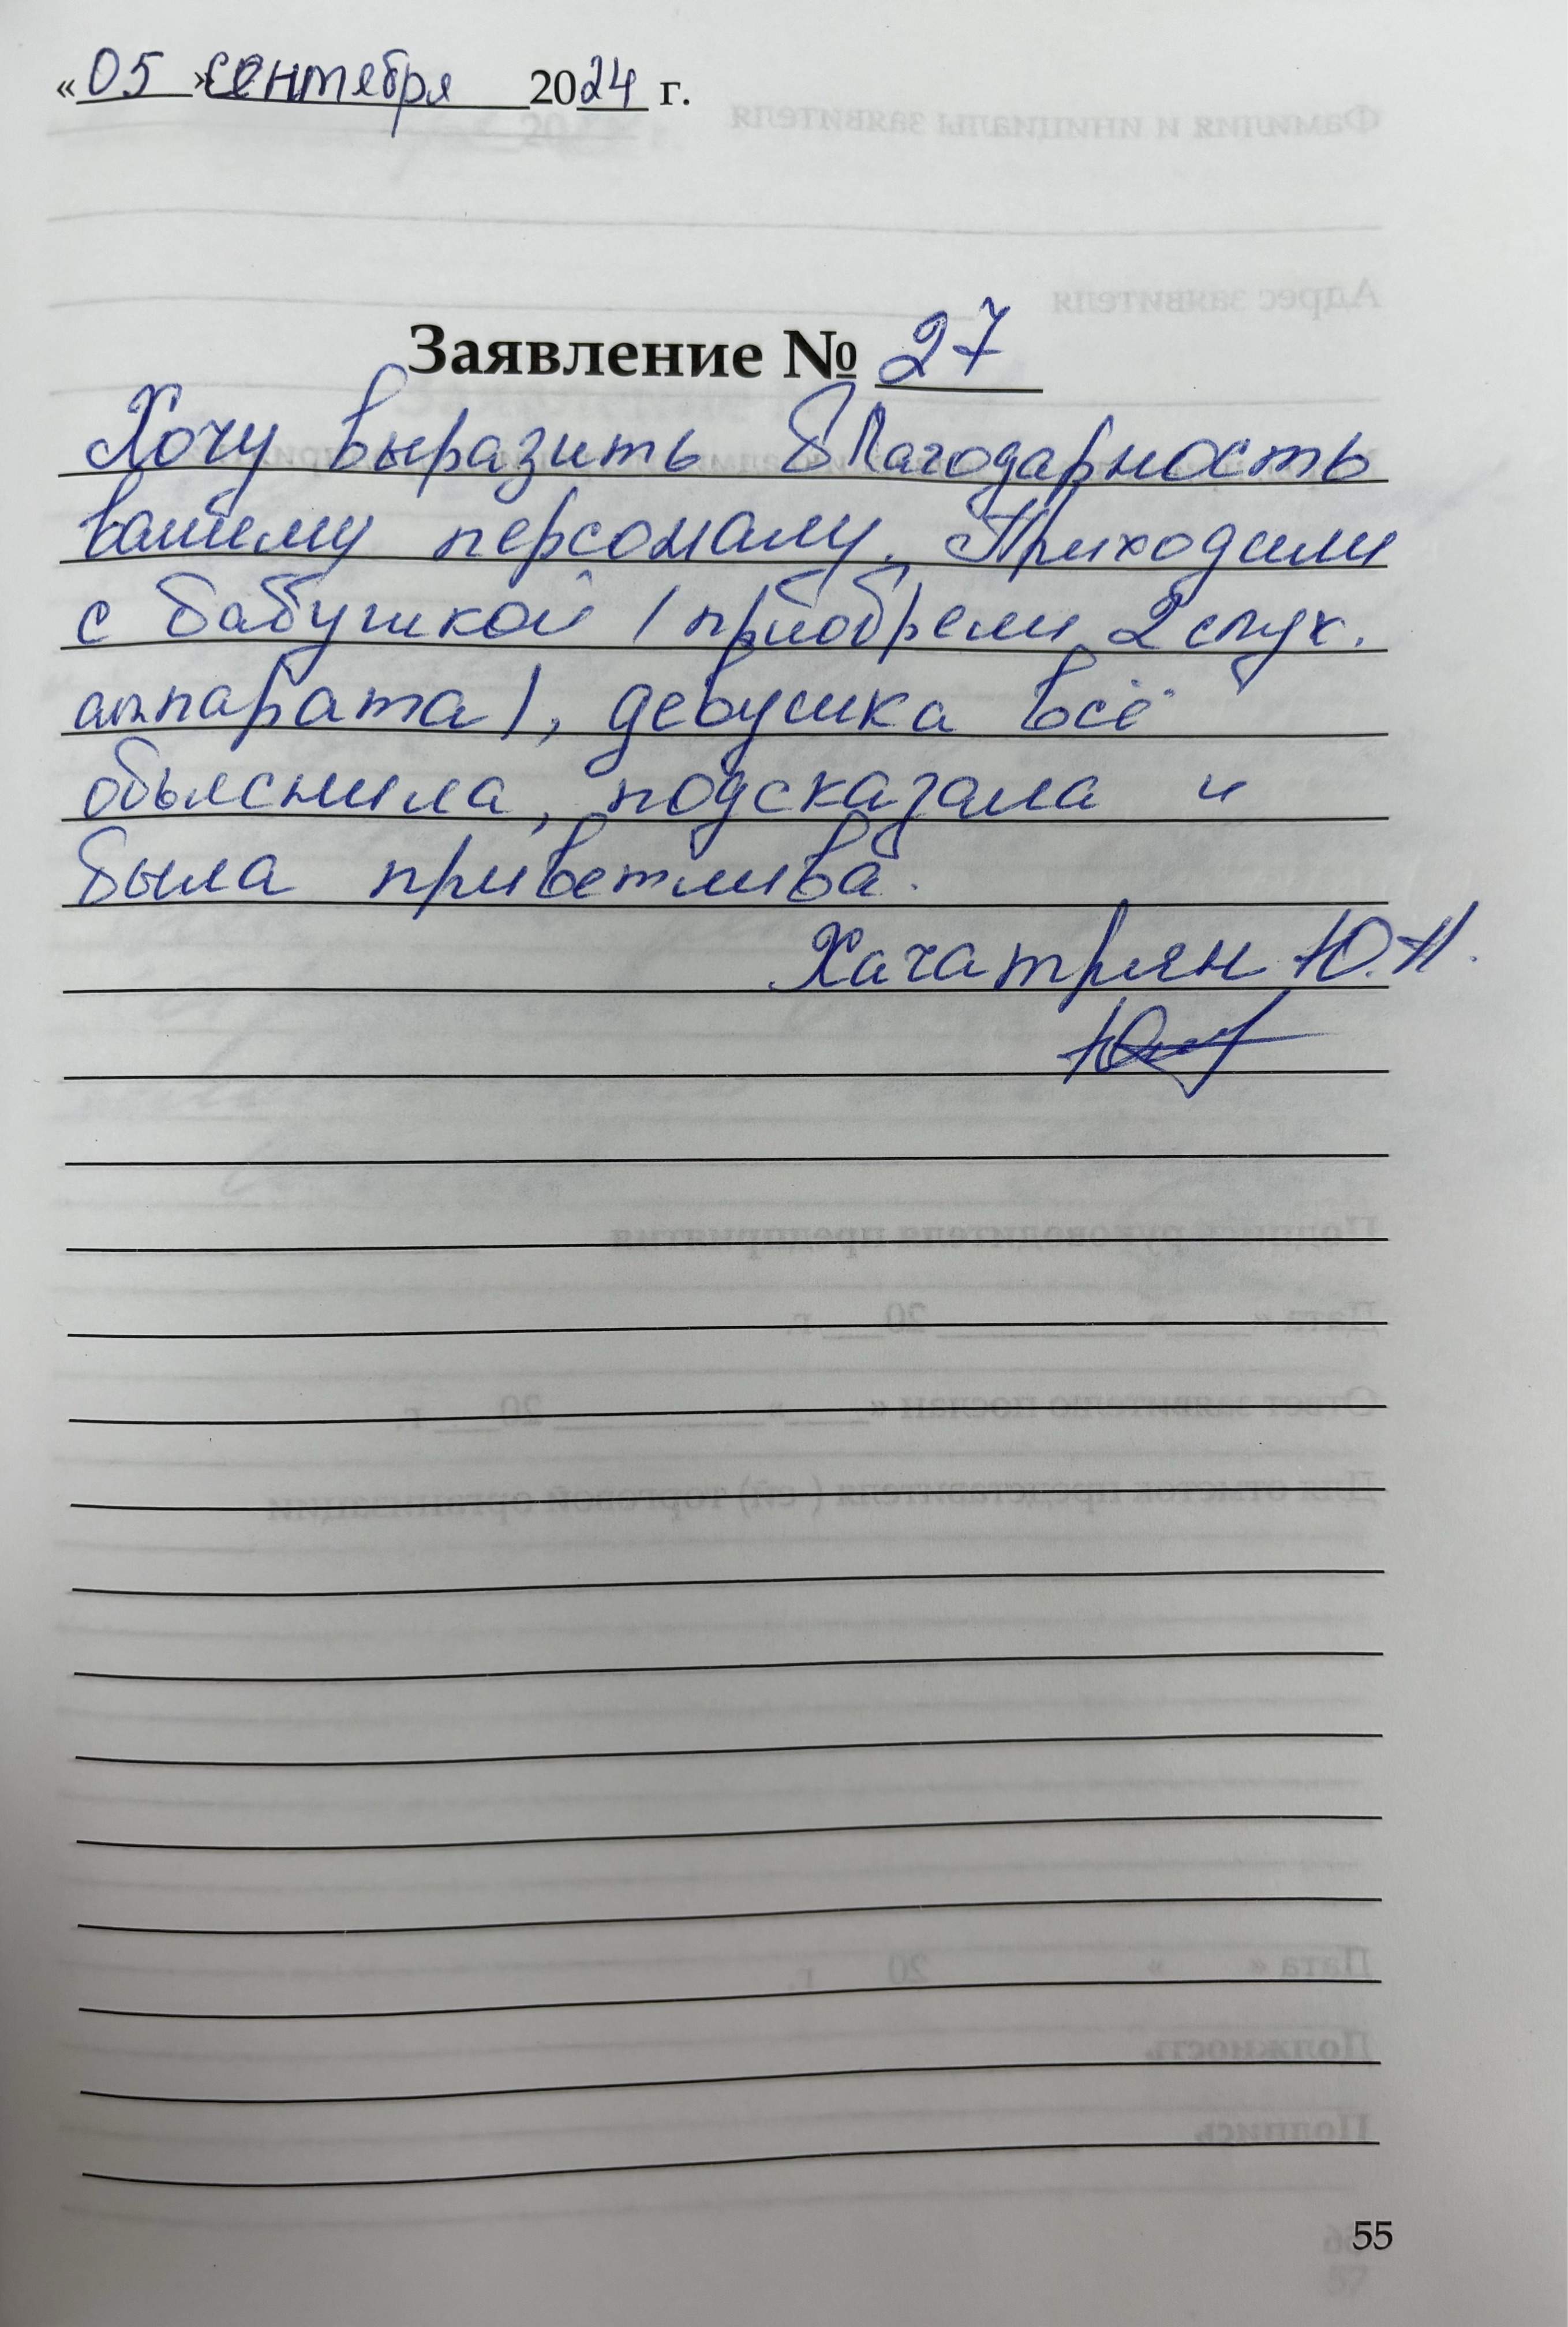 «05» сентября 2024 г.
Заявление № 27
Хочу выразить благодарность
вашему персоналу. Приходили
с бабушкой (приобрели 2 слух.
аппарата), девушка всё
обьяснила, подсказала и
была приветлива.
Хачатрян Ю.Н.
55